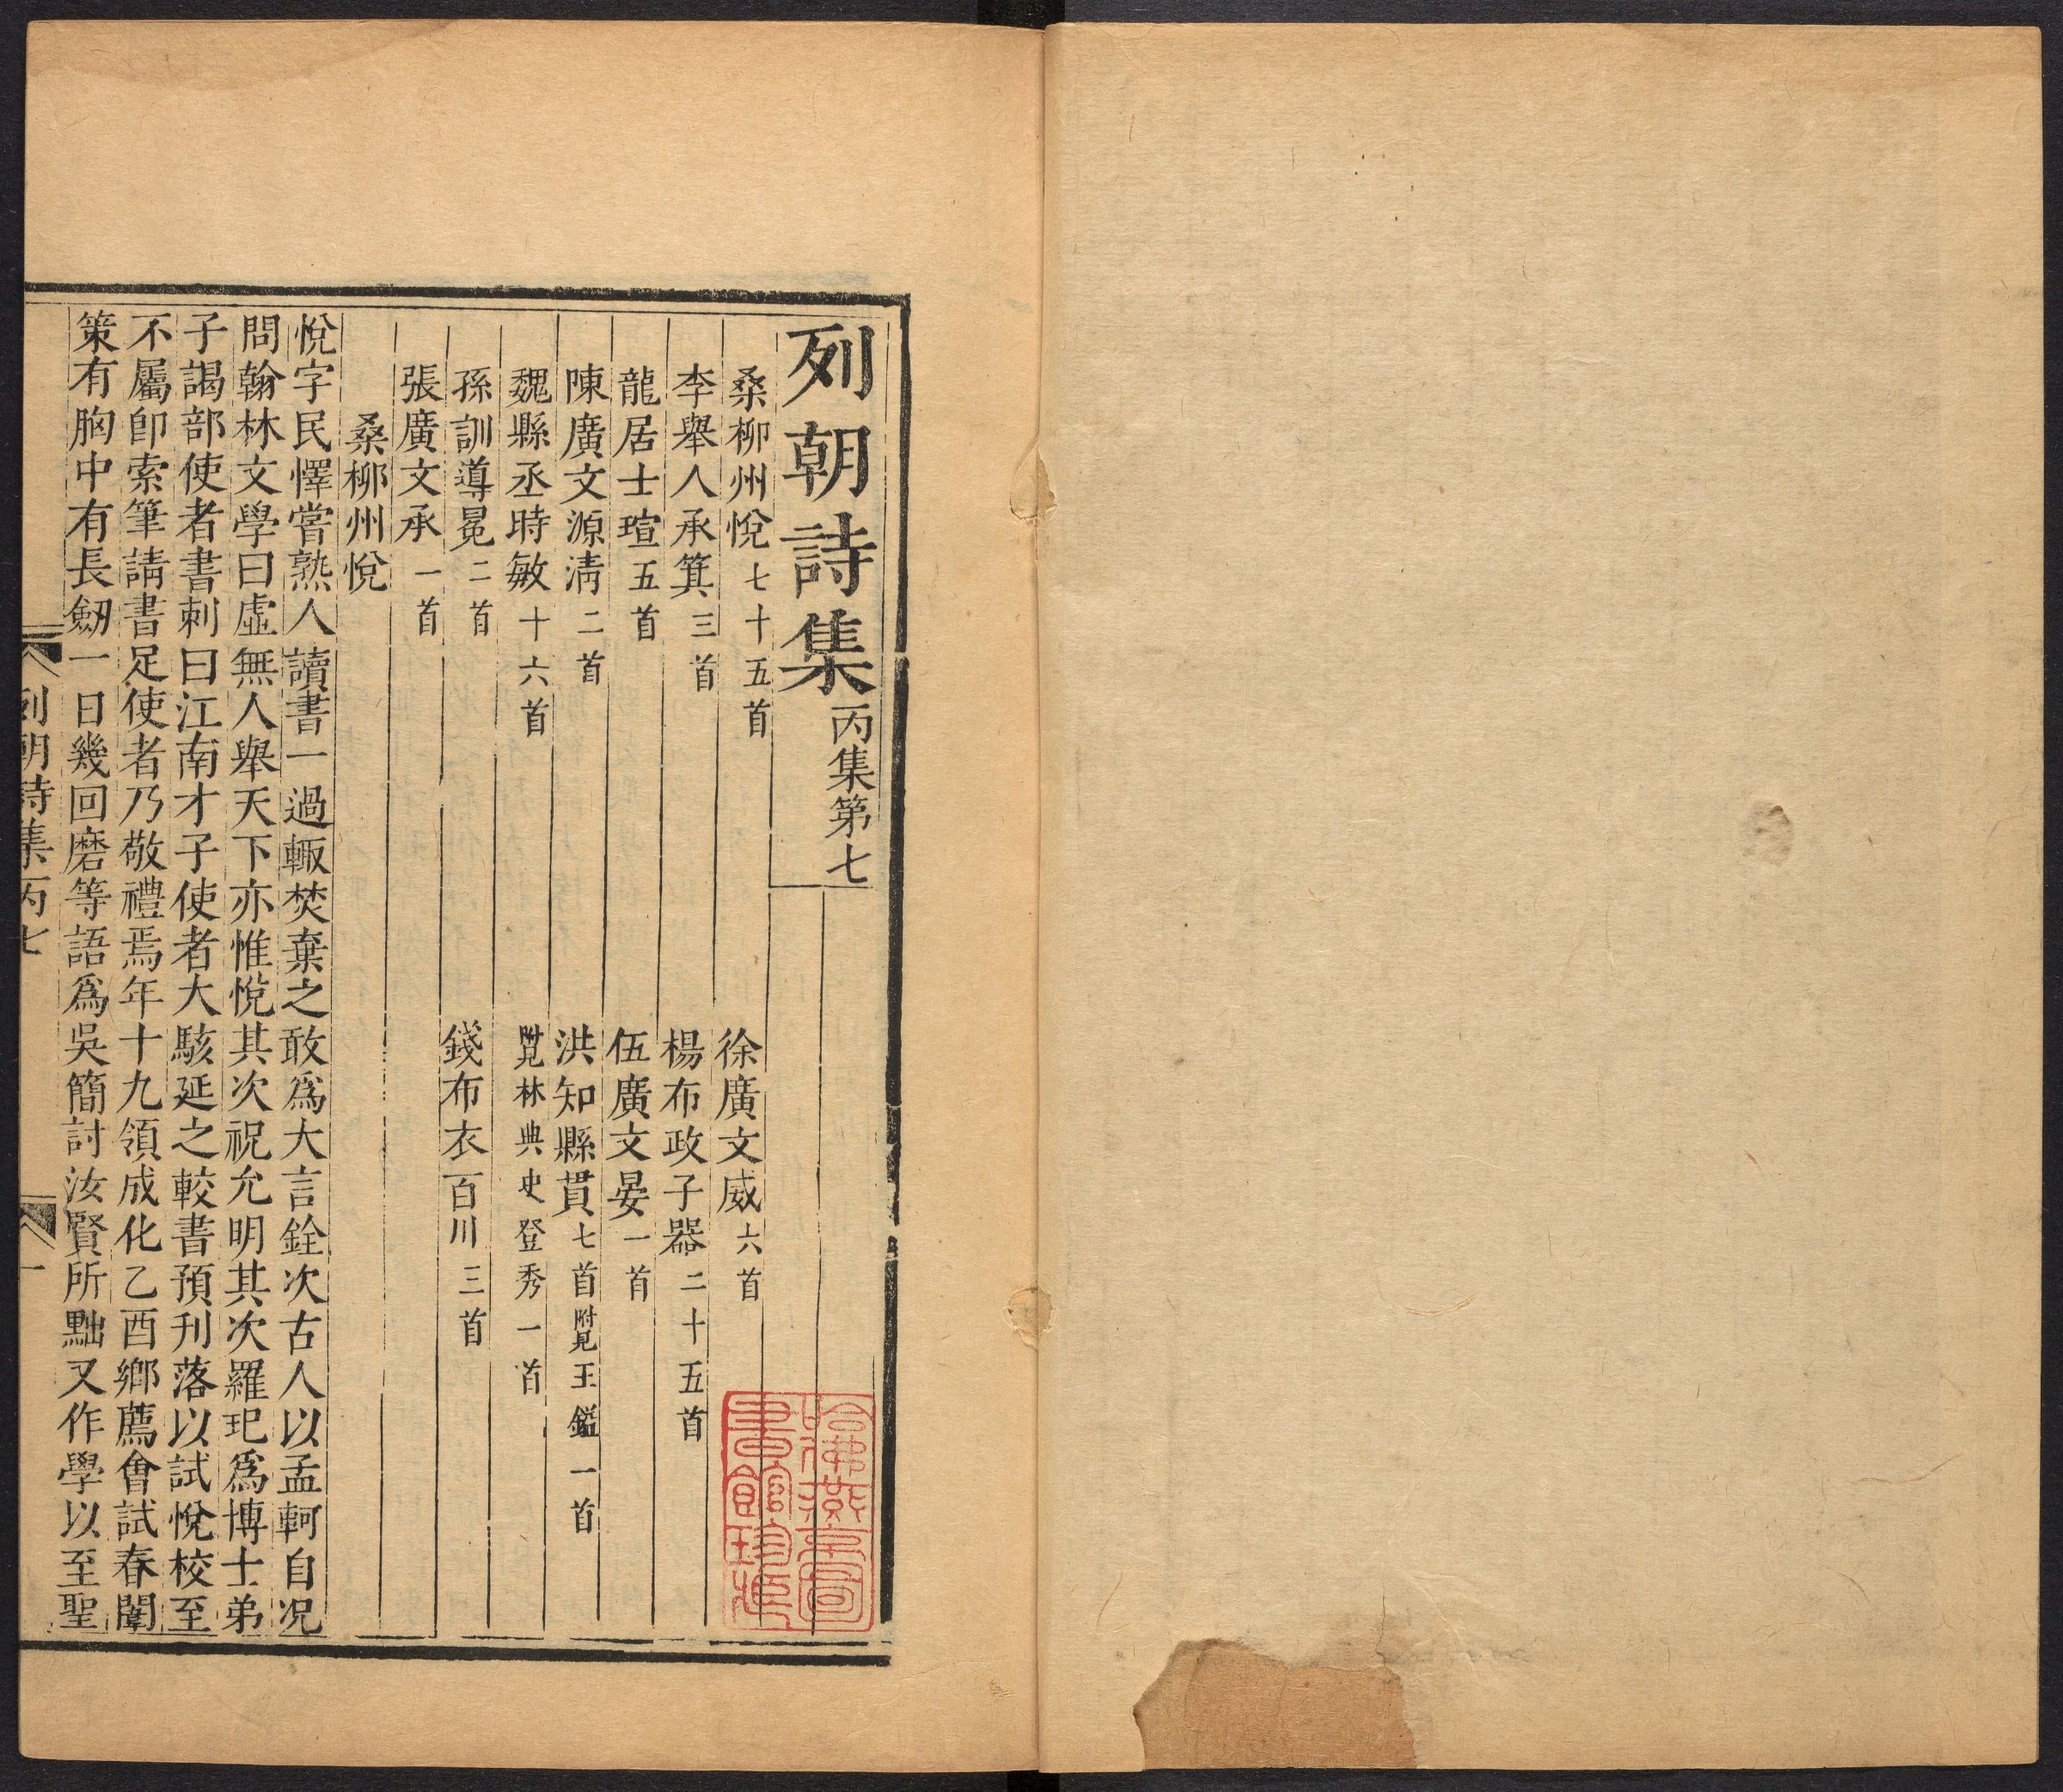 列朝詩集丙集第七
桑柳州悅七十五首
徐廣文威六首
李舉人承箕三首
楊布政子器二十五首
龍居士瑄五首
伍廣文晏一首
陳廣文源清二首
洪知縣貫七首附見王鎰一首
魏縣丞時敏十六首
附見林典史登秀一首
孫訓導冕二首
錢布衣百川三首
張廣文承一首
桑柳州悅
悅字民懌嘗熟人讀書一過輙焚棄之敢爲大言銓次古人以孟軻自况
問翰林文學曰虛無人舉天下亦惟悅其次祝允明其次羅玘爲博士弟
子謁部使者書刺曰江南才子使者大駭延之較書預刊落以試悅校至
不屬卽索筆請書足使者乃敬禮焉年十九領成化乙酉鄉薦會試春闈
策有胸中有長劒一日幾回磨等語爲吳簡討汝賢所黜又作學以至聖
列朝詩集丙七
一
哈佛燕京圖書館珍藏